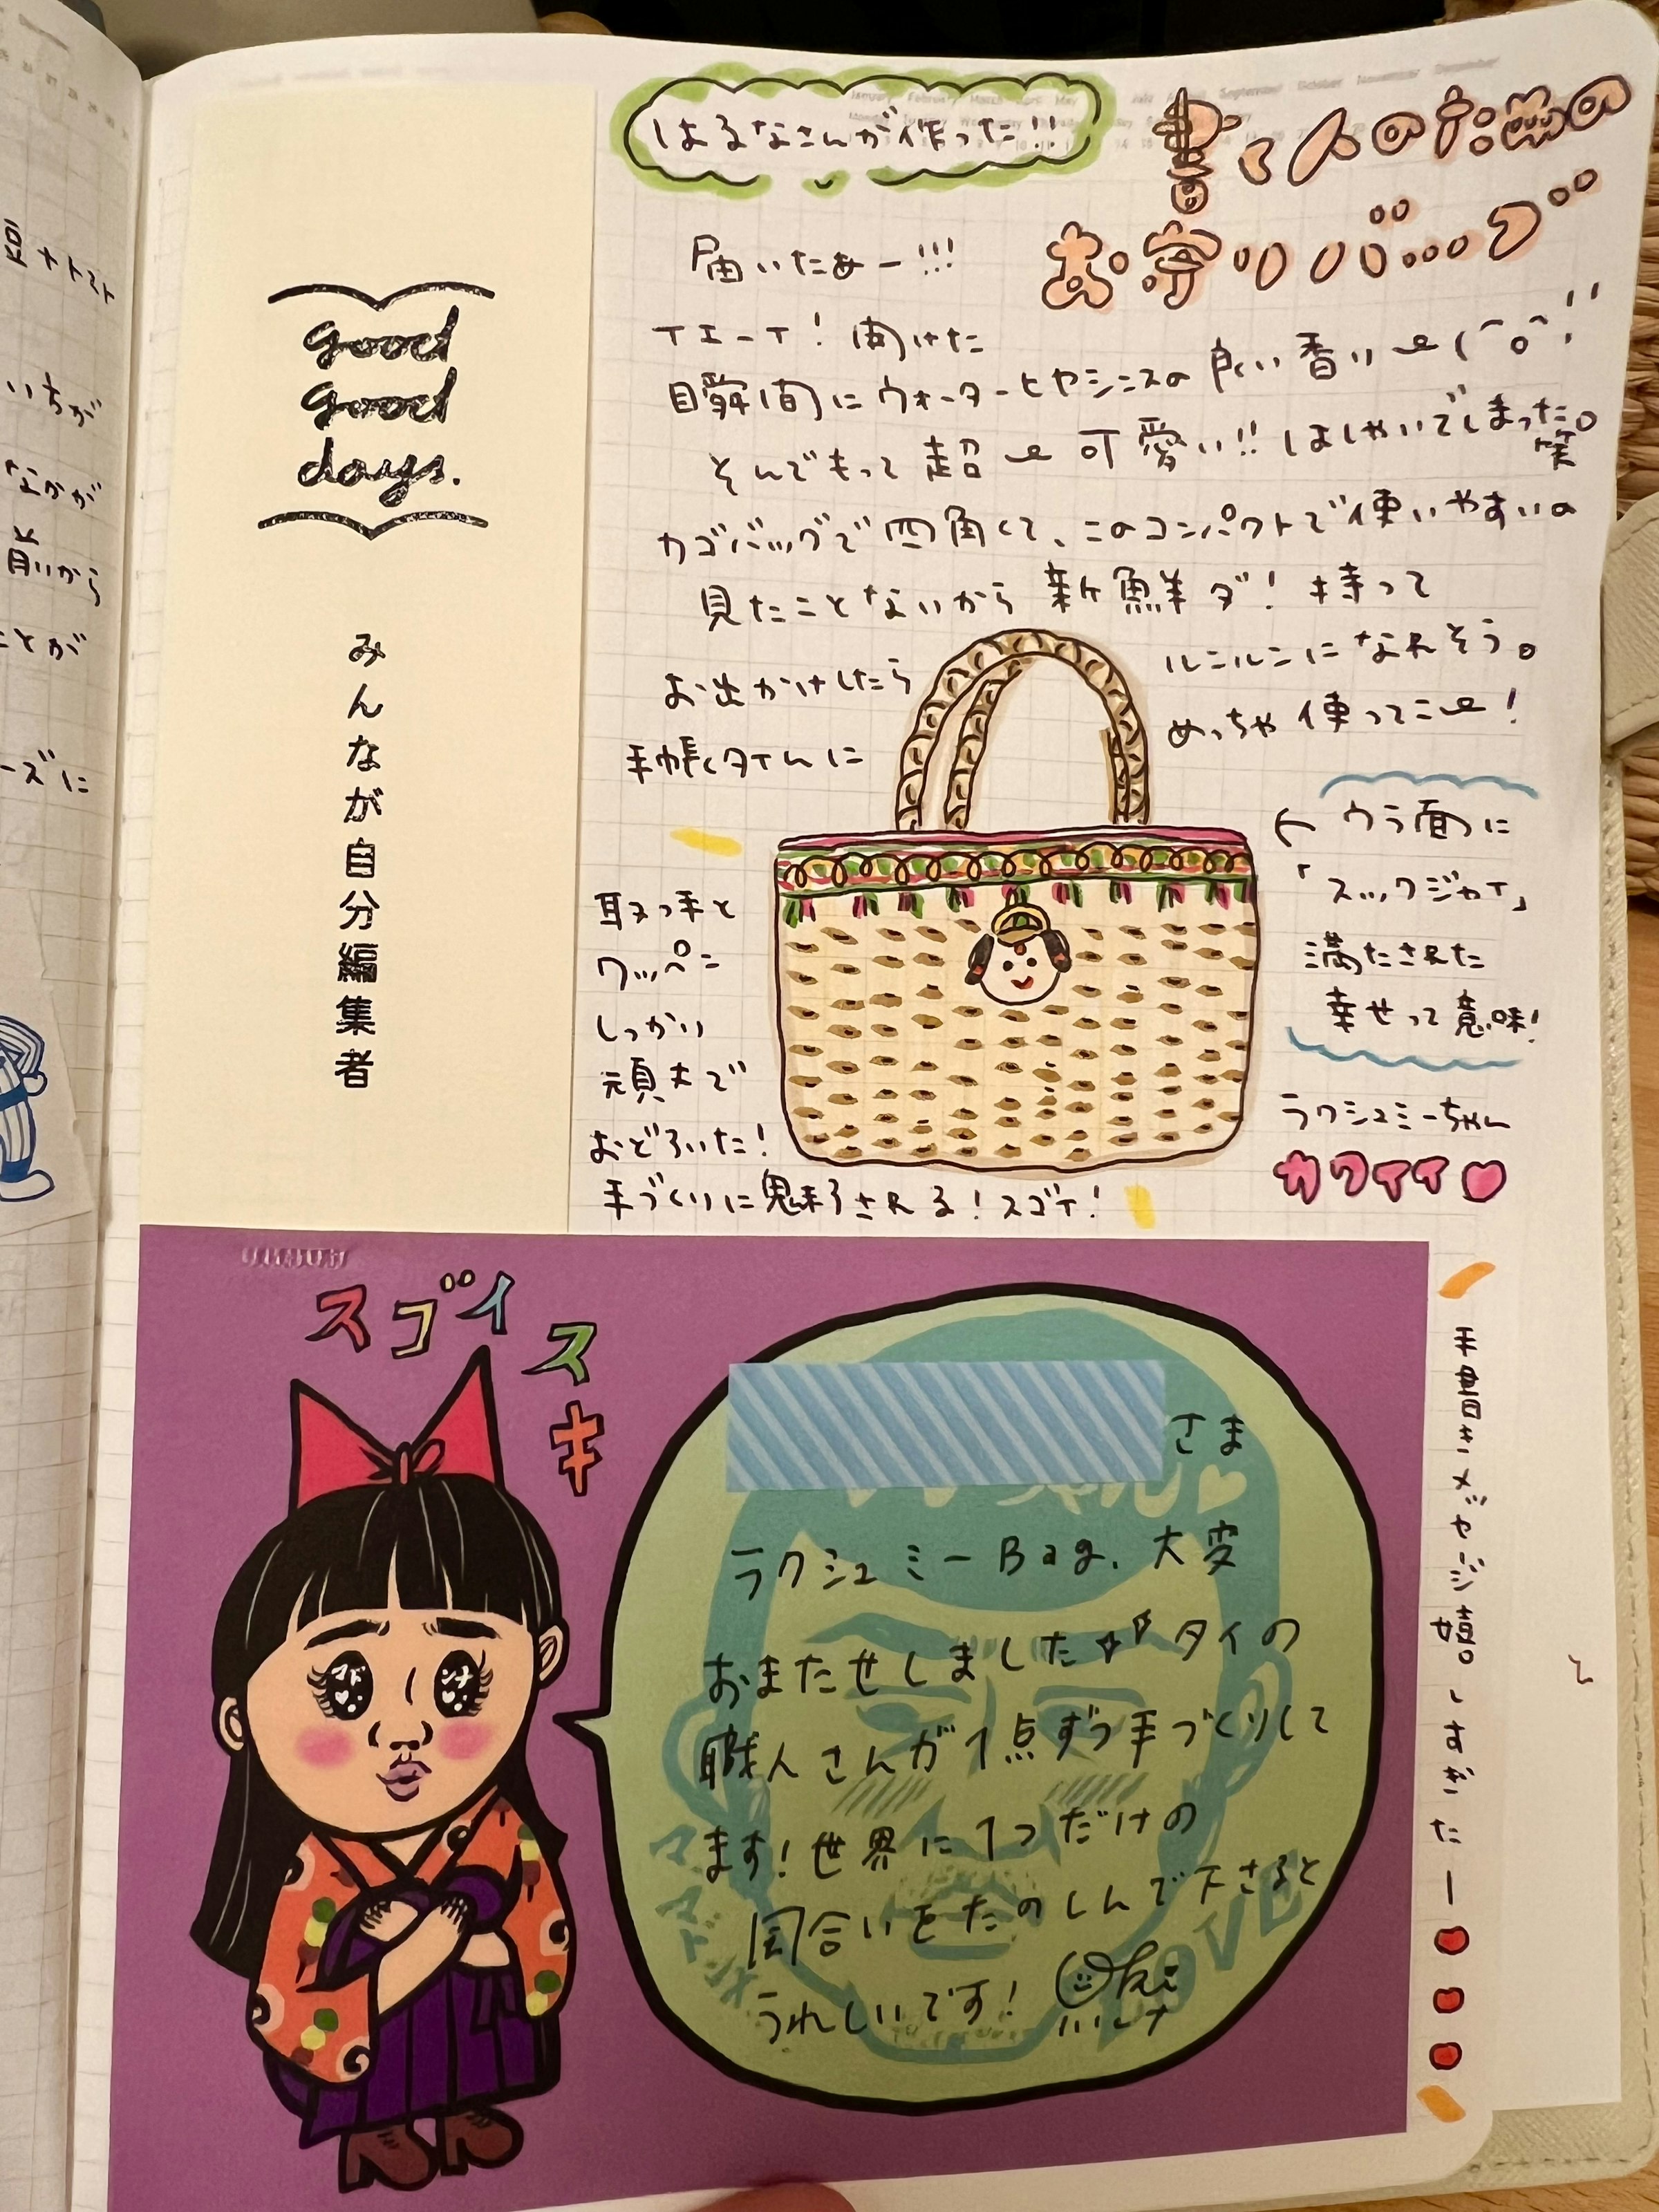 good
good
days.
みんなが自分編集者
はるなさんが作った!!
書く人のための
お守りバッグ
届いたぁー!!!
イエーイ! 開けた
瞬間にウォーターヒヤシンスの良い香り〜(^o^)!!
そんでもって超〜可愛い!! はしゃいでしまった。笑
カゴバッグで四角くて、このコンパクトで使いやすいの
見たことないから新鮮ダ! 持って
お出かけしたら ルンルンになれそう。
手帳タイムに めっちゃ使ってこ〜!
← ウラ面に
「スックジャイ」
満たされた
幸せって意味!
ラクシュミーちゃん
カワイイ
取っ手と
ワッペン
しっかり
頑丈で
おどろいた!
手づくりに魅了される! スゴイ!
スゴイスキ
さま
ラクシュミーBag、大変
おまたせしました タイの
職人さんが1点ずつ手づくりして
ます! 世界に1つだけの
風合いをたのしんで下さると
うれしいです!
LOVE
手書きメッセージ嬉。しすぎたー
買
いちが
なかが
前から
ことが
ーズに